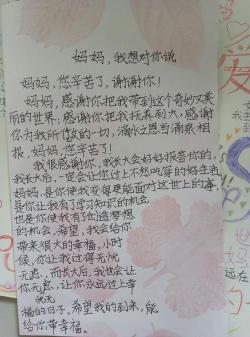 妈妈，我想对你说
妈妈，您辛苦了，谢谢你！
妈妈，感谢你把我带到这个奇妙又美
丽的世界，感谢你把我抚养到大，感谢
你为我所做的一切，滴水之恩当涌泉相
报，妈妈，您辛苦了！
我很感谢你，我长大会好好报答你的，
我长大后，一定会让您过上不愁吃穿的好生活
妈妈，是你使我变得更能面对这世上的事，
是你让我有了学习知识的机会，
也是你使我有了创造梦想
的机会，希望，我会给你
带来很大的幸福，小时
候，你让我过得无忧
无虑，而长大后，我也会让
你无虑，让你永远过上幸
忧无
福的日子，希望我的到来，能
给你带幸福。
爱
远在